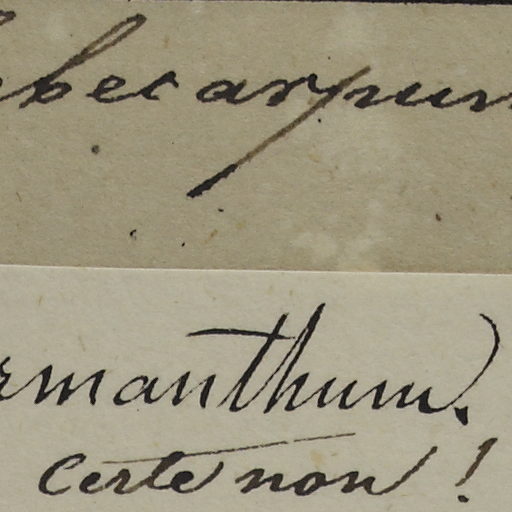 ebecarpum
rmanthum.
Certe non!